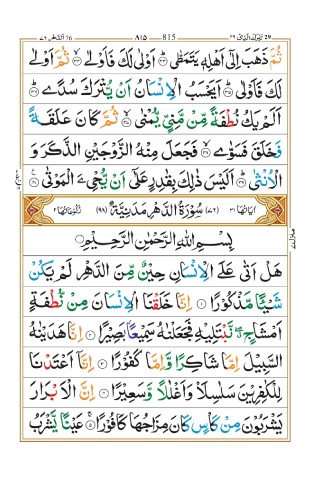 تَبٰرَكَ الَّذِيْ ٢٩ 815 ٨١٥ اَلدَّهْر ٧٦
ثُمَّ ذَهَبَ اِلٰٓى اَهْلِهٖ يَتَمَطّٰى ؕ﴿۳۳﴾ اَوْلٰى لَكَ فَاَوْلٰى ۙ﴿۳۴﴾ ثُمَّ اَوْلٰى
لَكَ فَاَوْلٰى ؕ﴿۳۵﴾ اَيَحْسَبُ الْاِنْسَانُ اَنْ يُّتْرَكَ سُدًى ؕ﴿۳۶﴾
اَلَمْ يَكُ نُطْفَةً مِّنْ مَّنِيٍّ يُّمْنٰى ۙ﴿۳۷﴾ ثُمَّ كَانَ عَلَقَةً
فَخَلَقَ فَسَوّٰى ۙ﴿۳۸﴾ فَجَعَلَ مِنْهُ الزَّوْجَيْنِ الذَّكَرَ وَ
الْاُنْثٰى ؕ﴿۳۹﴾ اَلَيْسَ ذٰلِكَ بِقٰدِرٍ عَلٰٓى اَنْ يُّحْيِۦَ الْمَوْتٰى ﴿۴۰﴾
اٰيَاتُهَا ٣١ (٧٦) سُوْرَةُ الدَّهْرِ مَدَنِيَّةٌ (٩٨) رُكُوْعَاتُهَا ٢
بِسْمِ اللّٰهِ الرَّحْمٰنِ الرَّحِيْمِ
هَلْ اَتٰى عَلَى الْاِنْسَانِ حِيْنٌ مِّنَ الدَّهْرِ لَمْ يَكُنْ
شَيْئًا مَّذْكُوْرًا ﴿۱﴾ اِنَّا خَلَقْنَا الْاِنْسَانَ مِنْ نُّطْفَةٍ
اَمْشَاجٍ ۖ نَّبْتَلِيْهِ فَجَعَلْنٰهُ سَمِيْعًۢا بَصِيْرًا ﴿۲﴾ اِنَّا هَدَيْنٰهُ
السَّبِيْلَ اِمَّا شَاكِرًا وَّاِمَّا كَفُوْرًا ﴿۳﴾ اِنَّاۤ اَعْتَدْنَا
لِلْكٰفِرِيْنَ سَلٰسِلَا۠ وَاَغْلٰلًا وَّسَعِيْرًا ﴿۴﴾ اِنَّ الْاَبْرَارَ
يَشْرَبُوْنَ مِنْ كَاْسٍ كَانَ مِزَاجُهَا كَافُوْرًا ۚ﴿۵﴾ عَيْنًا يَّشْرَبُ